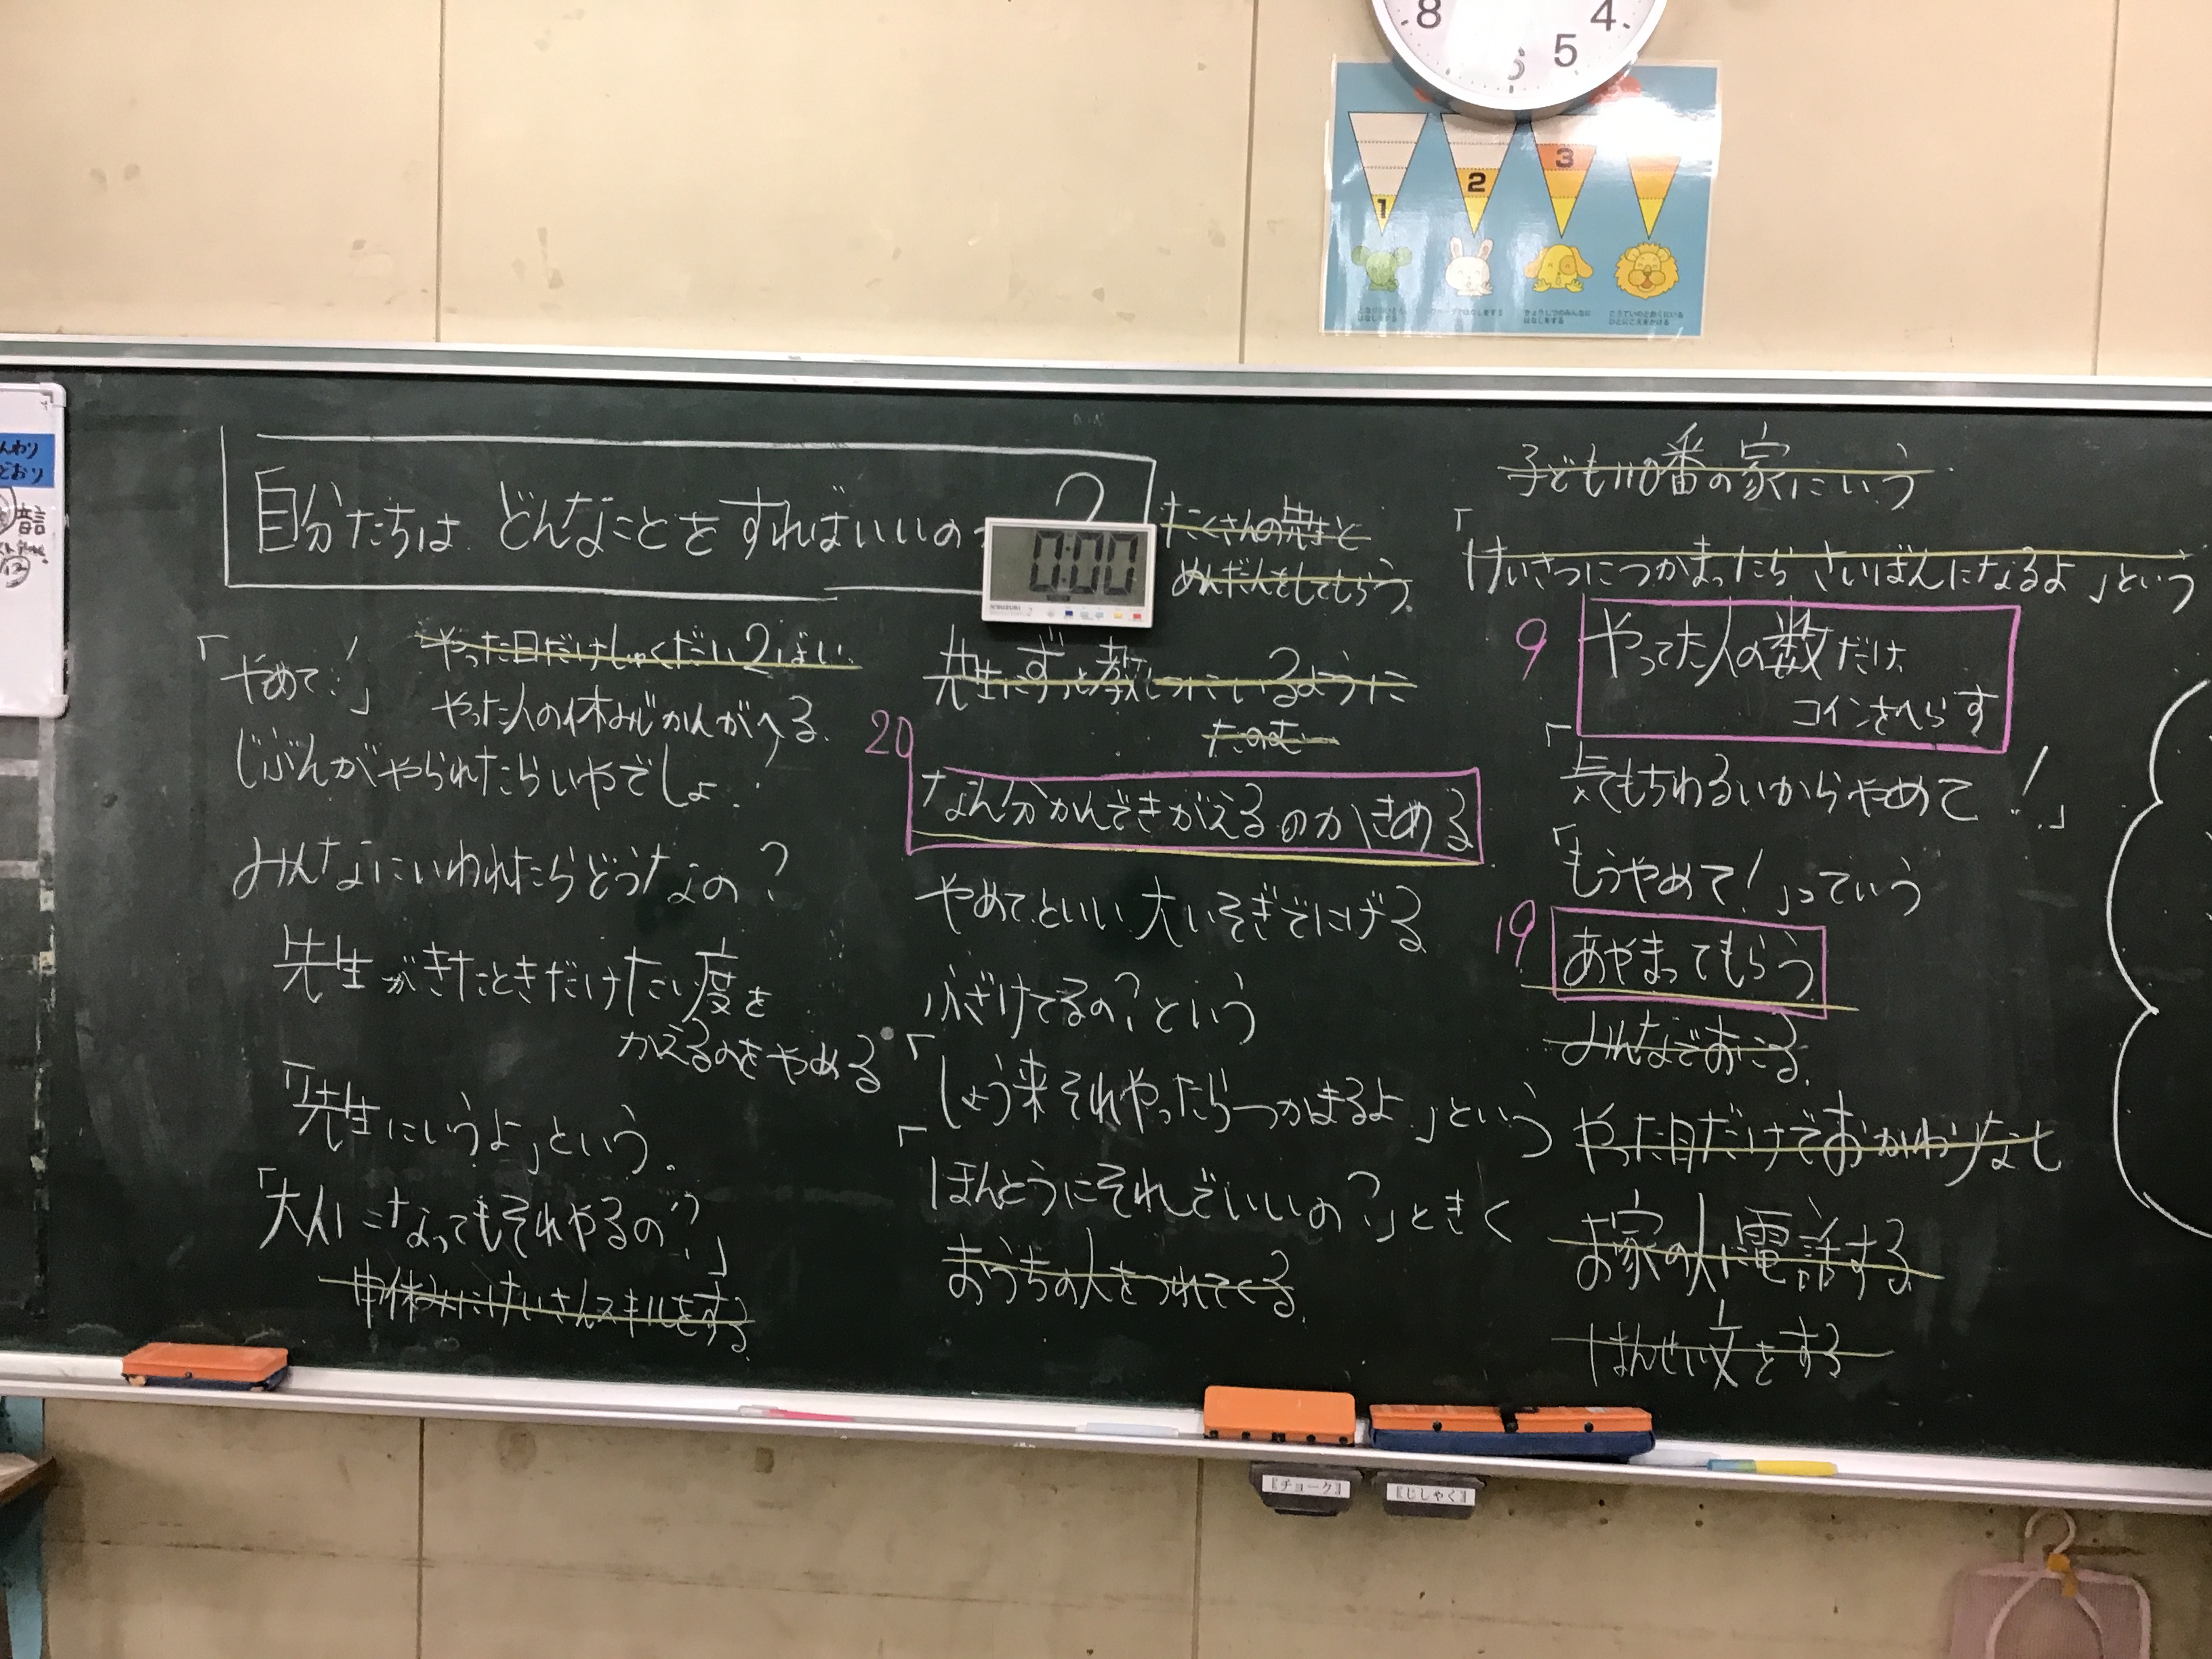 8
6
5
4
1
2
3
自分たちは どんなことを すればいいの
?
0:00
たくさんの先生と
めんだんをしてもらう。
「やめて!」
やった日だけしゅくだい2ばい
やった人の休みじかんがへる。
じぶんがやられたらいやでしょ!
みんなにいわれたらどうなの?
先生がきたときだけたい度を
かえるのをやめる
「先生にいうよ」という。
「大人になってもそれやるの?」
中休みにけいさんスキルをする
先生にずっと教しつにいるように
たのむ
20
なん分かんできがえるのかきめる
やめてといい大いそぎでにげる
ふざけてるの?という
「しょう来それやったらつかまるよ」という
「ほんとうにそれでいいの?」ときく
おうちの人をつれてくる。
子ども110番の家にいう
「けいさつにつかまったら さいばんになるよ」という
9
やってた人の数だけ
コインをへらす
「気もちわるいからやめて!」
「もうやめて!」っていう
19
あやまってもらう
みんなでおこる。
やった日だけでおかわりなし
お家の人に電話する
はんせい文をする
『チョーク』
『じしゃく』